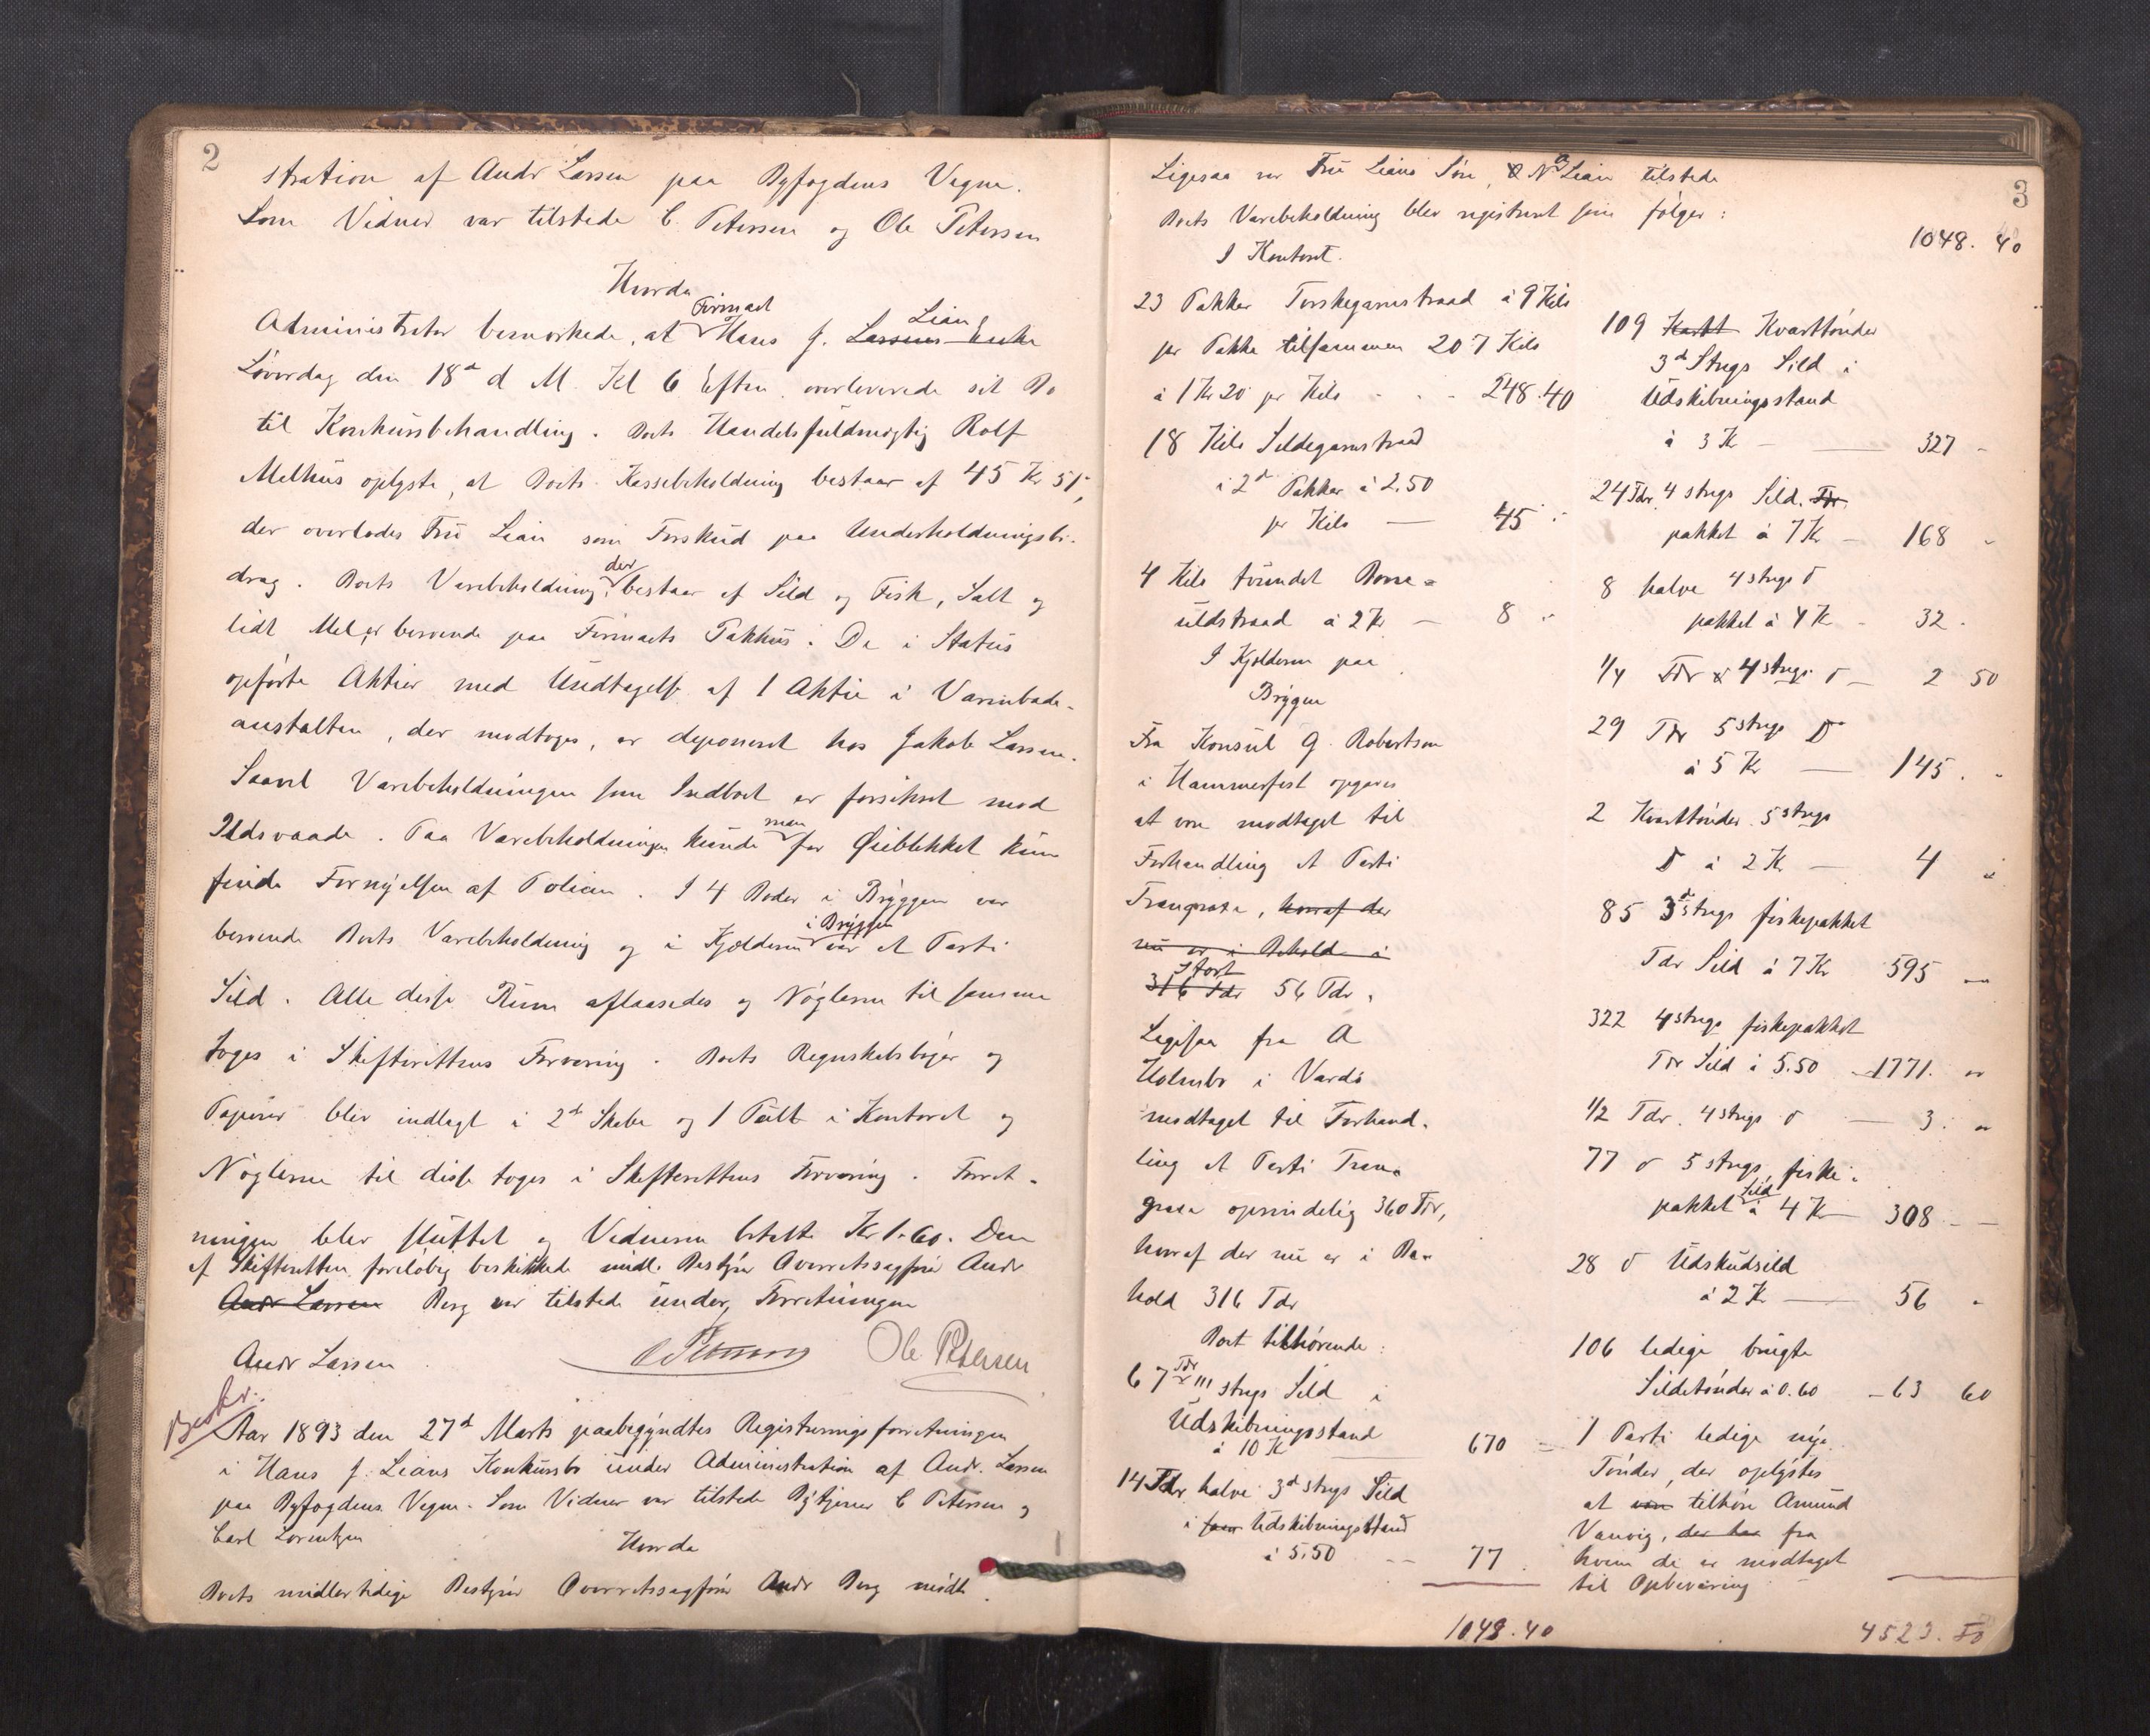 2
stration af Andr Larsen paa Byfogdens Vegne.
Som Vidner var tilstede C. Petersen og Ole Petersen
Hvorda
Administrator bemærkede, at Firmaet Hans J. Larsens Enke Lian
Løverdag den 18d d M. Kl 6 Eftm. overleverede sit Bo
til Konkursbehandling. Boets Handelsfuldmægtig Rolf
Melhus oplyste, at Boets Kassebeholdning bestaar af 45 Kr 51,
der overlodes Fru Lian som Forskud paa Underholdningsbi-
drag. Boets Varebeholdning, der bestaar af Sild og Fisk, Salt og
lidt Mel, er beroende paa Firmaets Pakhus. De i Status
opførte Aktier med Undtagelse af 1 Aktie i Varmbade-
anstalten, der modtoges, er deponeret hos Jakob Larsen.
Saavel Varebeholdningen som Indboet er forsikret mod
Ildsvaade. Paa Varebeholdningen kunde man for Øieblikket kun
finde Fornyelsen af Policen. I 4 Boder i Bryggen var
beroende Boets Varebeholdning og i Kjælderen i Bryggen var et Parti
Sild. Alle disse Rum aflaasedes og Nøglerne til samme
toges i Skifterettens Forvaring. Boets Regnskabsbøger og
Papirer blev indlagt i 2de Skabe og 1 Pult i Kontoret og
Nøglerne til disse toges i Skifterettens Forvaring. Forret-
ningen blev sluttet og Vidnerne betalte Kr 1.60. Den
af Skifteretten foreløbig beskikkede midl. Bestyrer Overretssagfører Andr
Andr Larsen Berg var tilstede under Forretningen
Andr Larsen C Petersen Ole Petersen
Beskr.
Aar 1893 den 27d Marts paabegyndtes Registreringsforretningen
i Hans J. Lians Konkursbo under Administration af Andr. Larsen
paa Byfogdens Vegne. Som Vidner var tilstede Bytjener C Petersen og
Carl Lorentzen
Hvorda
Boets midlertidige Bestyrer Overretssagfører Andr Berg mødte.
3
Ligesaa var Fru Lians Søn, N Lian tilstede
Boets Varebeholdning blev registreret som følger:
I Kontoret.
23 Pakker Torskegarnstraad à 9 Kilo
pr Pakke tilsammen 207 Kilo
à 1 Kr 20 pr Kilo - - - 248.40
18 Kilo Sildegarnstraad
i 2d Pakker à 2.50
pr Kilo — 45 "
4 Kilo tvundet Bom-
uldstraad à 2 Kr — 8 "
I Kjælderen paa
Bryggen
Fra Konsul G. Robertson
i Hammerfest opgaves
at være modtaget til
Forhandling et Parti
Trangraxe, hvoraf der
nu er i Behold i
316 Tdr 56 Tdr.
Ligesaa fra A
Holmbo i Vardø
modtaget til Forhand-
ling et Parti Tran-
graxe oprindelig 360 Tdr,
hvoraf der nu er i Be-
hold 316 Tdr
Boet tilhørende:
67 Tdr III stregs Sild i
Udskibningsstand
à 10 Kr 670 -
14 Tdr halve 3d stregs Sild
i Udskibningsstand
à 5.50 -- 77
1048.40
1048.40
109 Kvarttønder
3d Stregs Sild i
Udskibningsstand
à 3 Kr — 327 -
24 Tdr. 4 stregs Sild. Tdr
pakket à 7 Kr — 168 "
8 halve 4 stregs do
pakket à 4 Kr - 32 -
1/4 Tdr 4 stregs do — 2 50
29 Tdr 5 stregs Do
à 5 Kr — 145. "
2 Kvarttønder 5 stregs
Do à 2 Kr — 4 "
85 3d stregs fiskepakket
Tdr Sild à 7 Kr 595 "
322 4 stregs fiskepakket
Tdr Sild à 5.50 - 1771. "
1/2 Tdr. 4 stregs do — 3. "
77 do 5 stregs fiske-
pakket Sild à 4 Kr — 308 - -
28 do Udskudsild
à 2 Kr — 56 "
106 ledige brugte
Sildetønder à 0.60 - 63 60
1 Parti ledige nye
Tønder, der oplystes
at være tilhøre Amund
Vanvig, der har fra
hvem de er modtaget
til Opbevaring
4523.50